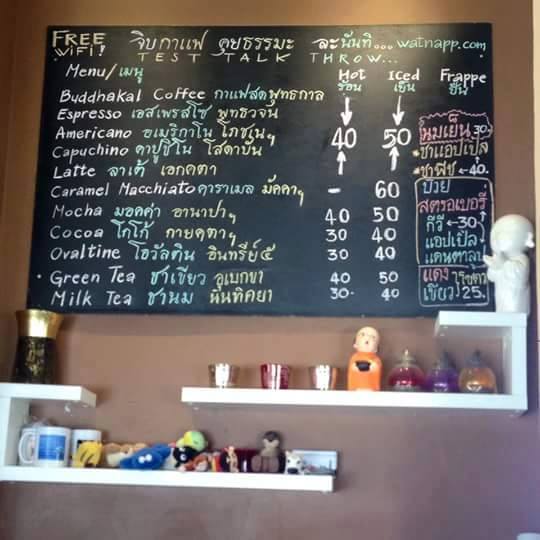 FREE WiFi! จิบกาแฟ คุยธรรมะ ละนันทิ... watnapp.com
TEST TALK THROW...
Menu/เมนู Hot ร้อน Iced เย็น Frappe ปั่น
Buddhakal Coffee กาแฟสดพุทธกาล
Espresso เอสเพรสโซ พุทธวจน
Americano อเมริกาโน โภชเนฯ
Capuchino คาปูชิโน โสดาบัน
40 50
Latte ลาเต้ เอกคตา
Caramel Macchiato คาราเมล มัคคาฯ - 60
Mocha มอคค่า อานาปาฯ 40 50
Cocoa โกโก้ กายคตาฯ 30 40
Ovaltine โอวัลติน อินทรีย์๕ 30 40
Green Tea ชาเขียว อุเบกขา 40 50
Milk Tea ชานม นันทิคยา 30 40
นมเย็น 30
*ชาแอปเปิ้ล
*ชาพีช 40
บ๊วย
สตรอเบอรี่
กีวี 30
แอปเปิ้ล
แคนตาลูป
แดง
เขียว 25